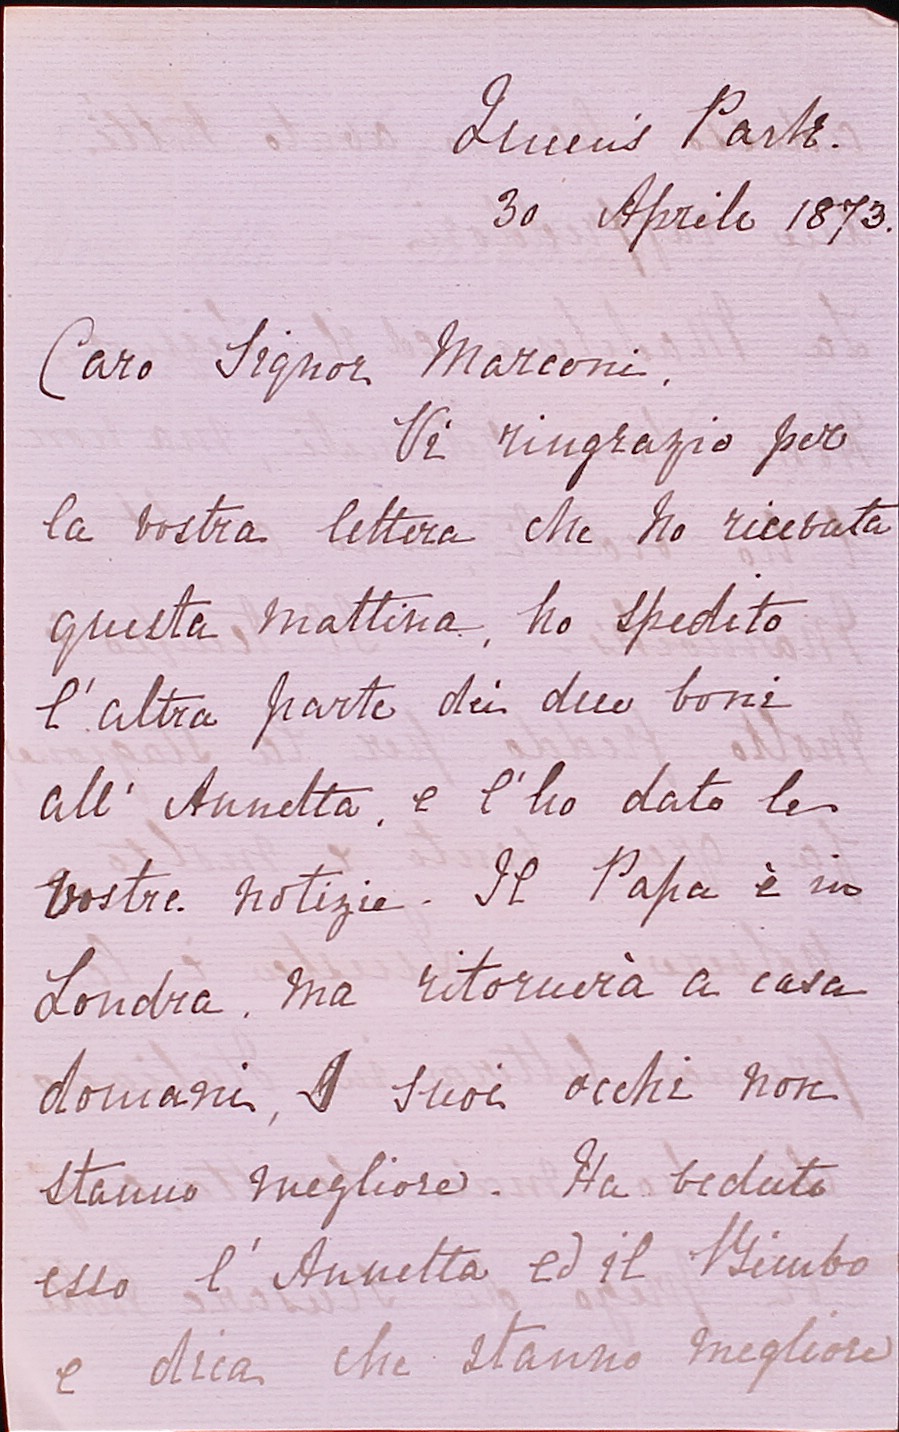 Queen's Park.
30 Aprile 1873.
Caro Signor Marconi,
Vi ringrazio per
la vostra lettera che ho ricevuta
questa mattina, ho spedito
l'altra parte dei due boni
all' Annetta, e l'ho dato le
vostre notizie. Il Papa è in
Londra, ma ritornerà a casa
domani, I suoi occhi non
stanno megliore. Ha veduto
esso l'Annetta ed il Bimbo
e dica che stanno megliore